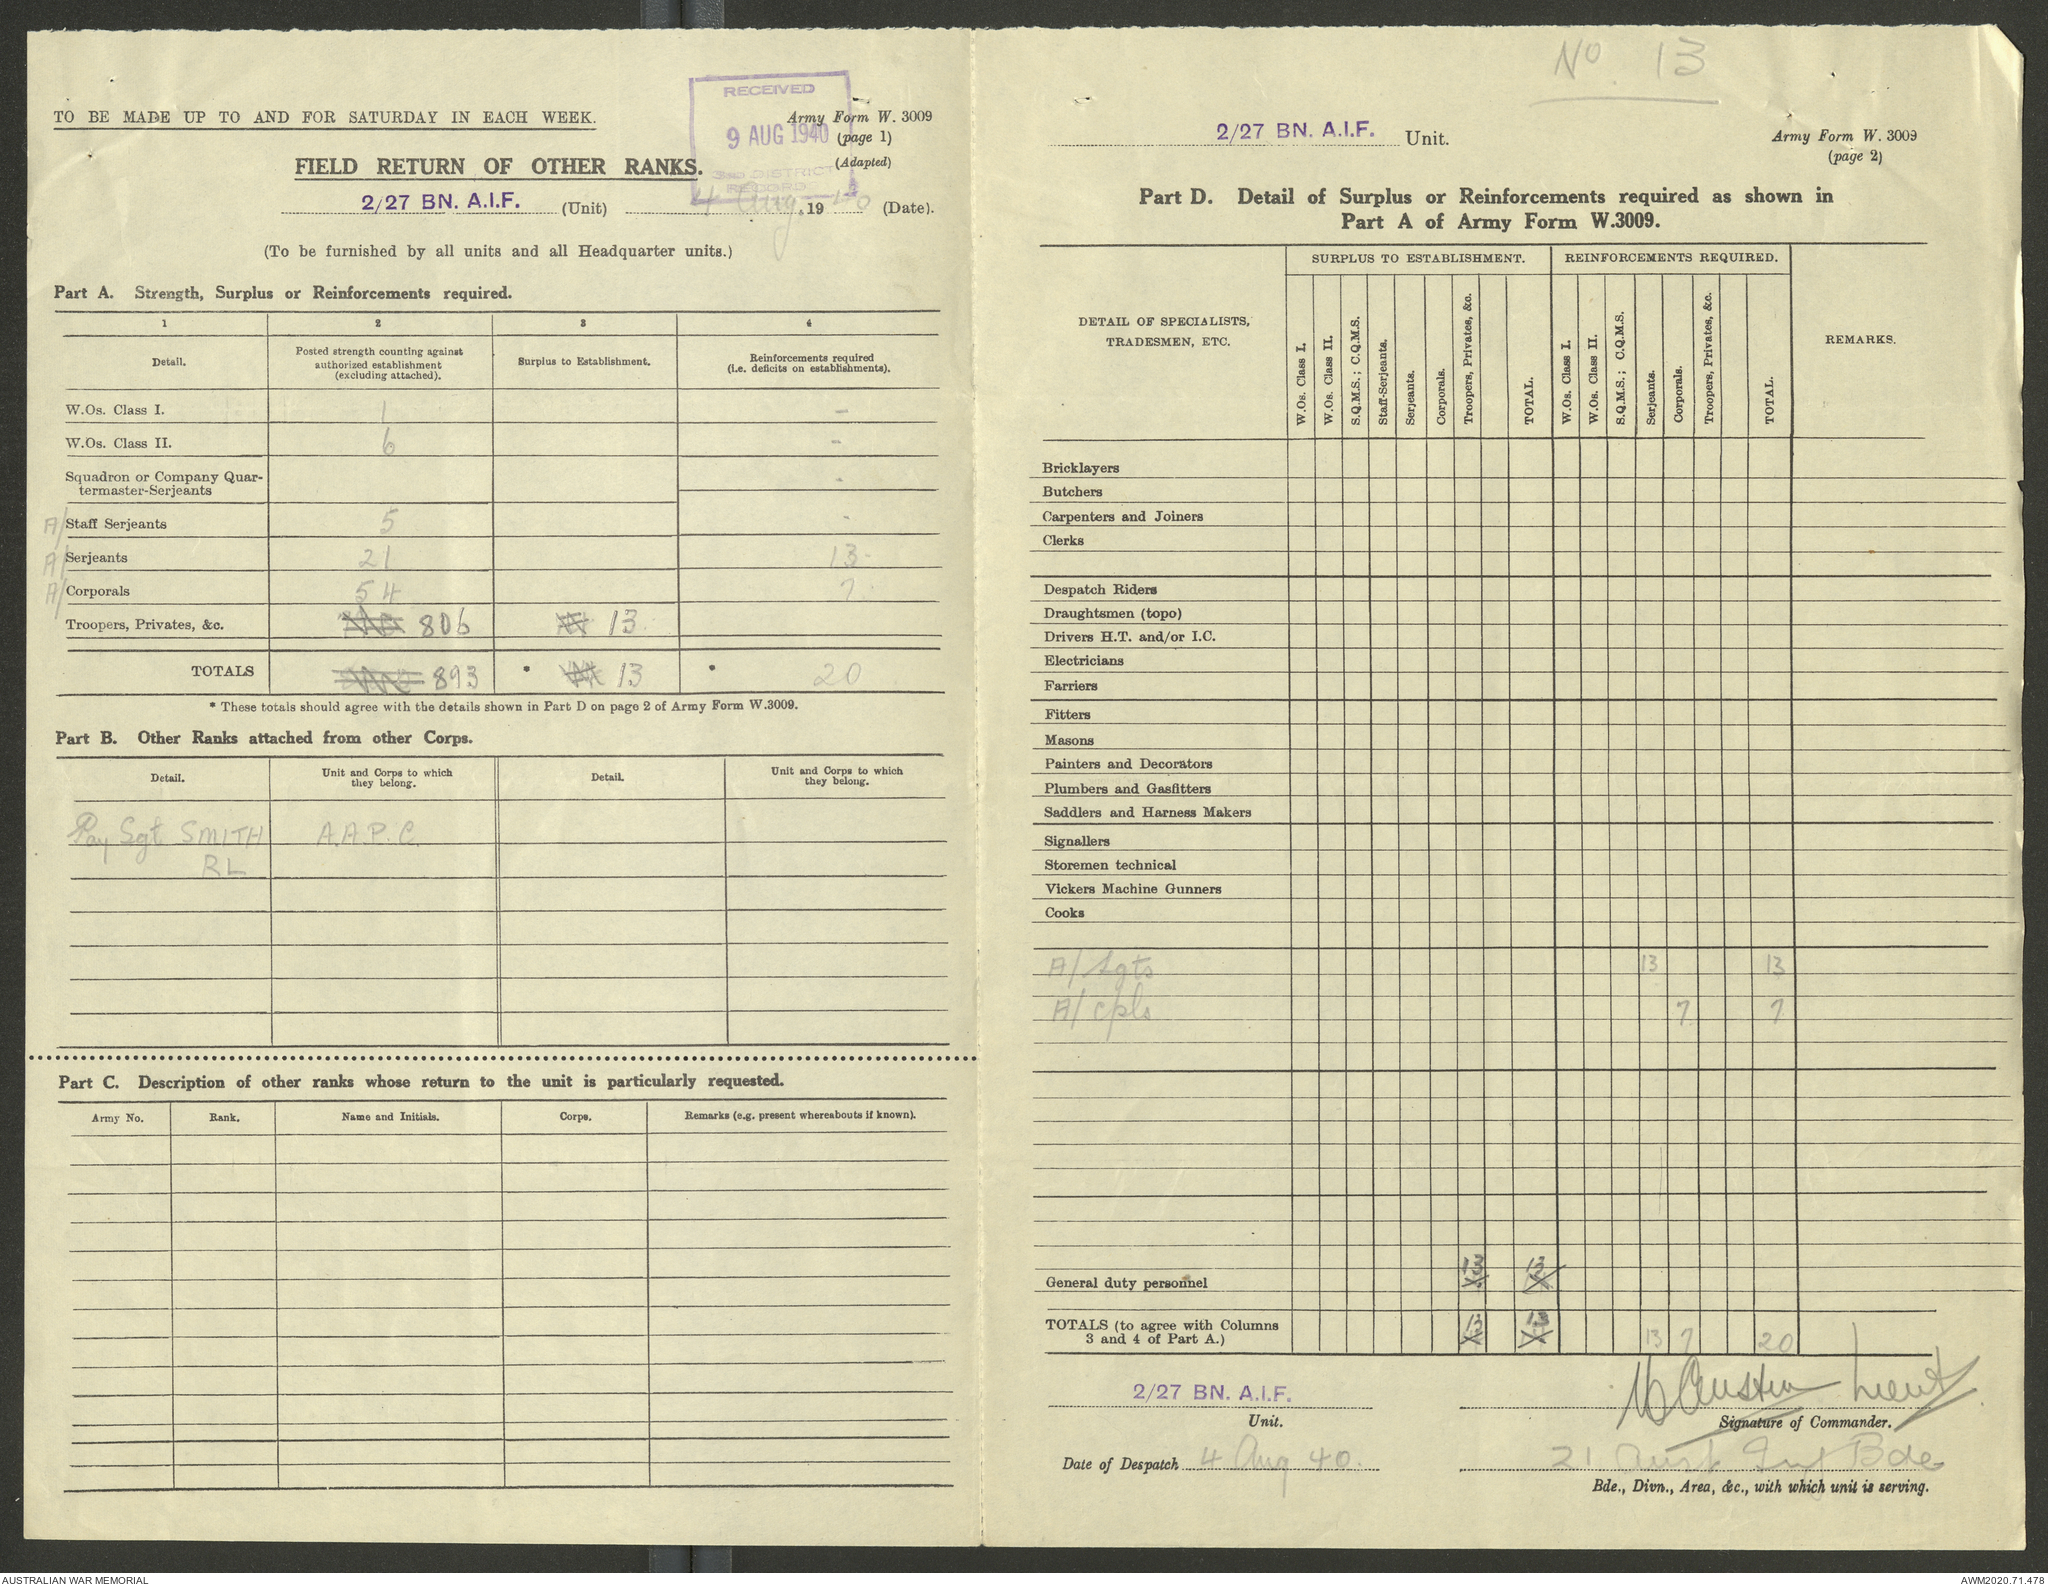 No 13
RECEIVED
9 AUG 1940
3RD DISTRICT
RECORDS
TO BE MADE UP TO AND FOR SATURDAY IN EACH WEEK.
Army Form W. 3009
(page 1)
(Adapted)
FIELD RETURN OF OTHER RANKS.
2/27 BN. A.I.F. (Unit) 4 Aug. 1940 (Date).
(To be furnished by all units and all Headquarter units.)
Part A. Strength, Surplus or Reinforcements required.
1 2 3 4
Detail. Posted strength counting against authorized establishment (excluding attached). Surplus to Establishment. Reinforcements required (i.e. deficits on establishments).
W.Os. Class I. 1 -
W.Os. Class II. 6 -
Squadron or Company Quar-
termaster-Serjeants -
A/ Staff Serjeants 5 -
A/ Serjeants 21 13-
A/ Corporals 54 7.
Troopers, Privates, &c. 806 13
TOTALS 893 * 13 * 20
* These totals should agree with the details shown in Part D on page 2 of Army Form W.3009.
Part B. Other Ranks attached from other Corps.
Detail. Unit and Corps to which they belong. Detail. Unit and Corps to which they belong.
Pay Sgt SMITH A.A.P.C.
RL
Part C. Description of other ranks whose return to the unit is particularly requested.
Army No. Rank. Name and Initials. Corps. Remarks (e.g. present whereabouts if known).
2/27 BN. A.I.F. Unit.
Army Form W. 3009
(page 2)
Part D. Detail of Surplus or Reinforcements required as shown in
Part A of Army Form W.3009.
DETAIL OF SPECIALISTS, TRADESMEN, ETC. SURPLUS TO ESTABLISHMENT. REINFORCEMENTS REQUIRED. REMARKS.
W.Os. Class I. W.Os. Class II. S.Q.M.S.; C.Q.M.S. Staff-Serjeants. Serjeants. Corporals. Troopers, Privates, &c. TOTAL. W.Os. Class I. W.Os. Class II. S.Q.M.S.; C.Q.M.S. Serjeants. Corporals. Troopers, Privates, &c. TOTAL.
Bricklayers
Butchers
Carpenters and Joiners
Clerks
Despatch Riders
Draughtsmen (topo)
Drivers H.T. and/or I.C.
Electricians
Farriers
Fitters
Masons
Painters and Decorators
Plumbers and Gasfitters
Saddlers and Harness Makers
Signallers
Storemen technical
Vickers Machine Gunners
Cooks
A/Sgts 13 13
A/cpls 7 7
General duty personnel 13 13
TOTALS (to agree with Columns
3 and 4 of Part A.) 13 13 13 7 20
2/27 BN. A.I.F.
Unit.
Austin Lieut
Signature of Commander.
Date of Despatch 4 Aug 40.
21 Aust Inf Bde
Bde., Divn., Area, &c., with which unit is serving.
AUSTRALIAN WAR MEMORIAL
AWM2020.71.478